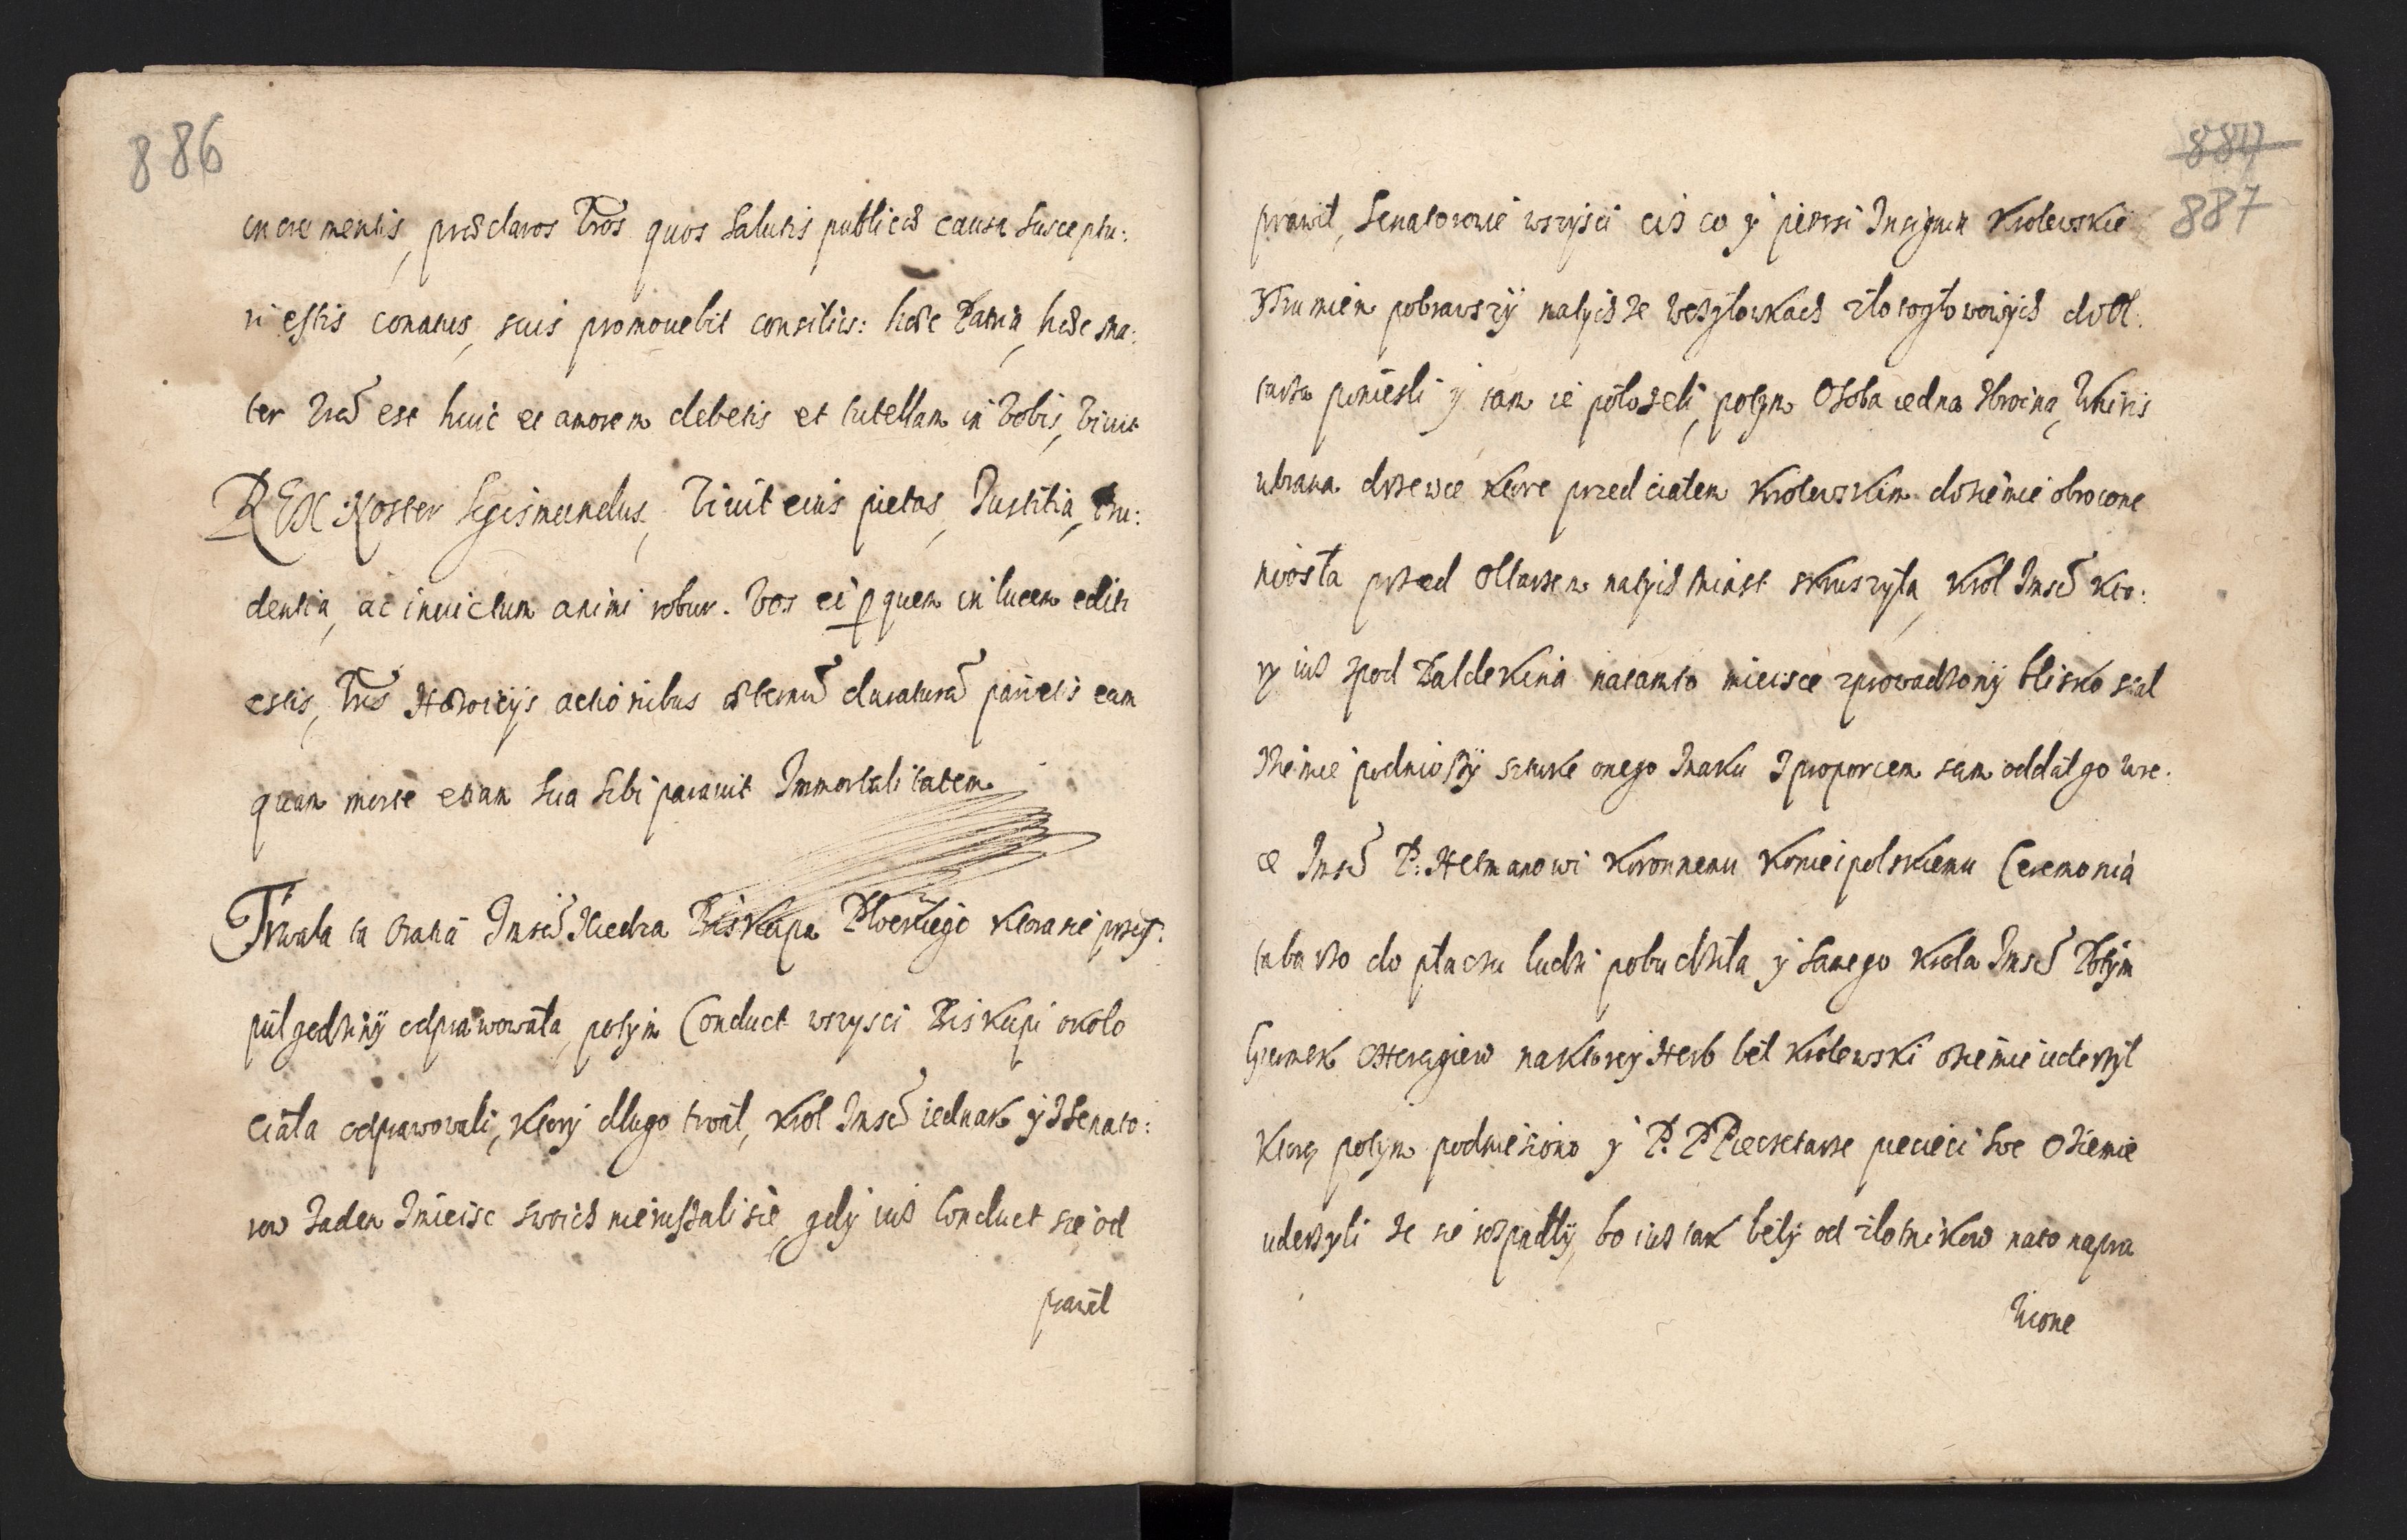 886
incrementis, præclaros Vros quos Salutis publicæ causa susceptu:
ri estis conatus, suis promouebit consilijs: hæc Patria, hæc ma:
ter Vra est huic et amorem debetis et tutellam in Vobis, Viuit
REX Noster Sigismundus, Viuit eius pietas, Justitia, Pru:
dentia, ac inuictum animi robur. Vos ei p quem in lucem editi
estis, Vris Heroicijs actionibus æterna duratura parietis eam
quam morte etiam sua sibi parauit Immortalitatem
Trwała ta Oratia Jmsci Xiedza Biskupa Płockiego ktora sie przez
puł godziny odprawowała, potym Conduct wszysci Biskupi około
ciała odprawowali, ktory długo trwał, Krol Jmsc iednak y zSenato:
row żaden zmieisc swoich nieruszali sie, gdy iuż Conduct sie od
prawil
887
887
prawił, Senatorowie wszysci ciż co y piersi Insignia Krolewskie
ztrumien pobrawszy natychże wezgłowkach złotogłowowych do Ol:
tarza poniesli y tam ie położeli, potym Osoba iedna zbroina, Wkiris
ubrana drzewce ktore przed ciałem Krolewskim doziemie obrocone
niosła przed Ołtarzem natychmiast skruszyła, Krol Jmsc kto:
ry iuż zpod Baldekina natamto mieisce zprowadzony blisko stał
Zziemie podniozszy sztukę onego znaku zproporcem sam oddał go wre:
ce Jmsci P: Hetmanowi Koronnemu Konieipolskiemu Ceremonia
ta barzo do płaczu ludzi pobudziła y samego Krola Jmsci Potym
Giermek Choragiew naktorey Herb beł Krolewski oziemie uderzył
ktorą potym podniesiono y P. P Pieczetarze pieczeci swe Oziemie
uderzyli że sie rozpadły, bo iuż tak beły od złotnikow nato napra
wione